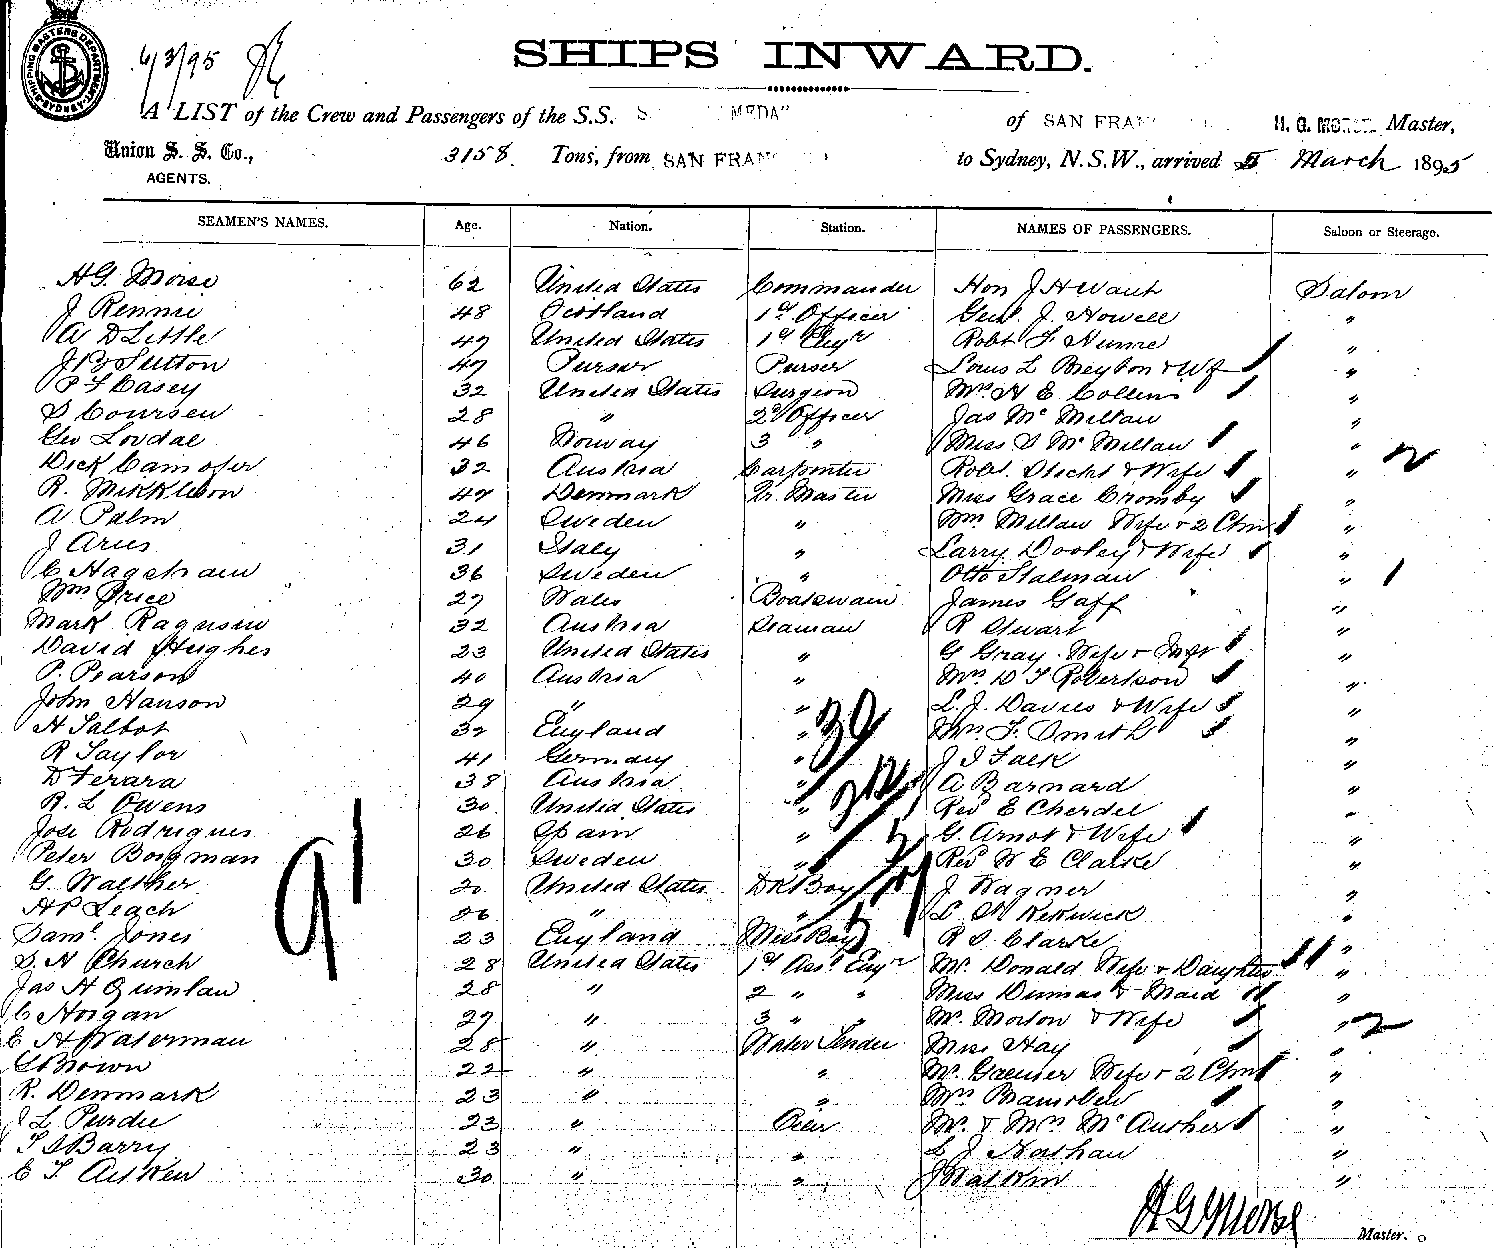 SHIPPING MASTERS DEPARTMENT SYDNEY
6/3/95
SHIPS INWARD.
A LIST of the Crew and Passengers of the S.S. S MEDA" of SAN FRAN H. G. MORSE Master,
Union S. S. Co., AGENTS. 3158 Tons, from SAN FRAN to Sydney, N.S.W., arrived 5 March 1895
SEAMEN'S NAMES. Age. Nation. Station. NAMES OF PASSENGERS. Saloon or Steerage.
H G. Morse 62 United States Commander Hon J H Want Saloon
J Rennie 48 Scotland 1st Officer Genl. J. Howell "
A D Little 47 United States 1st Engr Robt F Hume "
J B Sutton 47 Purser Purser Louis L Breyton & Wf "
P F Casey 32 United States Surgeon Mrs H E Collins "
S Coursen 28 " 2d Officer Jas Mc Millan "
Geo Lovdal 46 Norway 3 " Miss S Mc Millan "
Dick Camofer 32 Austria Carpenter Robt. Sticht & Wife " 2
R. Mikkleson 47 Denmark Qr. Master Miss Grace Cromby "
A Palm 24 Sweden " Wm Millaw Wife & 2 Chn "
J Arus 31 Italy " Larry Dooley & Wife "
C Hagstram 36 Sweden " Otto Stalman " 1
Wm Price 27 Wales Boatswain James Gaff "
Mark Ragusin 32 Austria Seaman R Stuart "
David Hughes 23 United States " G Gray. Wife & Inft "
P. Pearson 40 Austria " Mrs D F Robertson "
John Hanson 29 " " L. J. Davies & Wife "
H Talbot 32 England " Mrs. F. Smith "
R Taylor 41 Germany " J I Falk "
D Ferara 38 Austria " A Barnard "
R. L Owens 30 United States " Revd E Cherdel "
Jose Rodrigues 26 Spain " G. Arnot & Wife "
Peter Borgman 30 Sweden " Revd W E Clarke "
G. Walther 20 United States Dk Boy J Wagner "
H P Leach 26 " " L M Kekwick "
Saml. Jones 23 England Mess Boy R S. Clarke "
S. H Church 28 United States 1st Asst Engr Mr. Donald Wife & Daughter "
Jas H Quinlan 28 " 2 " " Miss Dumas & Maid "
C Horgan 27 " 3 " " Mr. Morton & Wife " 2
E H Waterman 28 " Water Tender Miss Hay "
G Brown 22 " " Mr. Gaeuser Wife & 2 Chn "
R. Denmark 23 " " Mrs "
J L Purdie 23 " Oiler Mr. & Mrs Mc "
T S Barry 23 " " L J Nathan "
E T Aitken 30 " " J Watkin "
91
39
H G Morse Master.